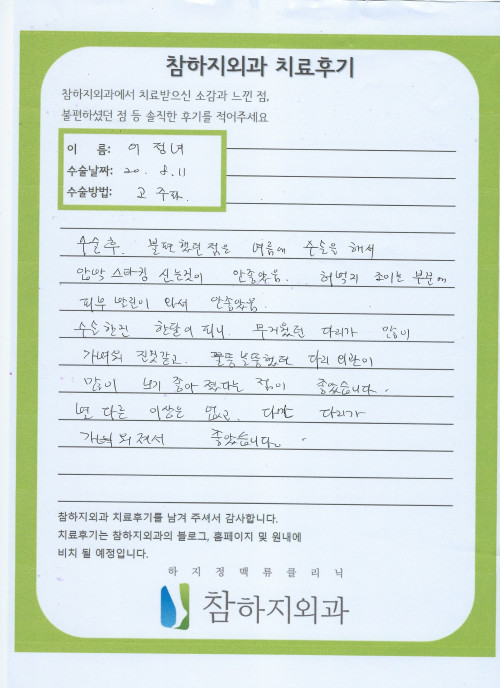 참하지외과 치료후기
참하지외과에서 치료받으신 소감과 느낀 점,
불편하셨던 점 등 솔직한 후기를 적어주세요
이 름: 이정녀
수술날짜: 20. 8. 11
수술방법: 고주파
수술후. 불편했던 점은 여름에 수술을 해서
압박 스타킹 신는것이 안좋았음. 허벅지 조이는 부분에
피부 발진이 와서 안좋았음.
수술한진 한달이 되니. 무거웠던 다리가 많이
가벼워 진것같고. 울퉁불퉁했던 다리 외관이
많이 보기 좋아 졌다는 점이 좋았습니다.
별 다른 이상은 없고. 다만 다리가
가벼워져서 좋았습니다.
참하지외과 치료후기를 남겨 주셔서 감사합니다.
치료후기는 참하지외과의 블로그, 홈페이지 및 원내에
비치 될 예정입니다.
하지정맥류클리닉
참하지외과